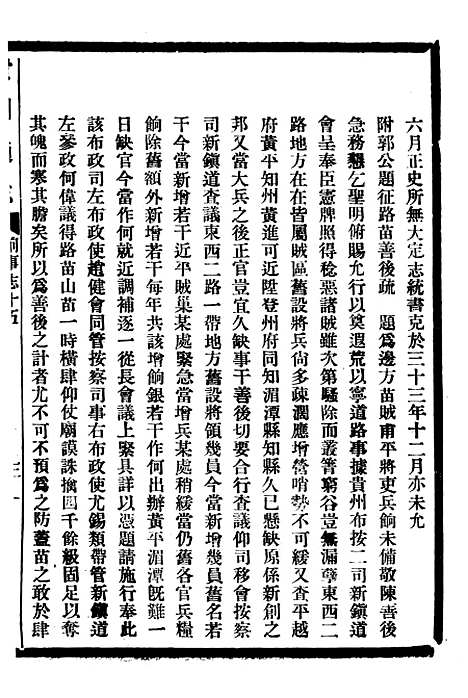 六月正史所無大定志統書克於三十三年十二月亦未允
附郭公題征路苗善後疏　題為邊方苗賊甫平將吏兵餉未備敬陳善後
急務懇乞聖明俯賜允行以奠遐荒以寧道路事據貴州布按二司新鎮道
會呈奉臣憲牌照得稔惡諸賊雖次第騷除而叢箐窮谷豈無漏孽東西二
路地方在在皆屬賊區舊設將兵尚多疎濶應增營哨勢不可緩又查平越
府黃平知州黃進可近陞登州府同知湄潭縣知縣久已懸缺原係新創之
邦又當大兵之後正官豈宜久缺事干善後切要合行查議仰司移會按察
司新鎮道查議東西二路一帶地方舊設將領幾員今當新增幾員舊名若
干今當新增若干近平賊巢某處緊急當增兵某處稍緩當仍舊各官兵糧
餉除舊額外新增若干每年共該增餉銀若干作何出辦黃平湄潭旣難一
日缺官今當作何就近調補逐一從長會議上緊具詳以憑題請施行奉此
該布政司左布政使趙健會同管按察司事右布政使尤錫類帶管新鎮道
左叅政何偉議得路苗山苗一時橫肆仰仗廟謨誅擒四千餘級固足以奪
其魄而寒其膽矣所以為善後之計者尤不可不預為之防葢苗之敢於肆
前事志十五